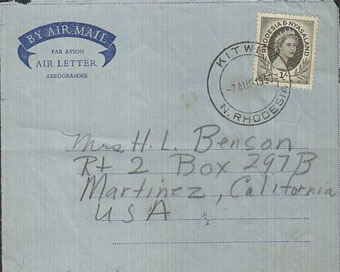 BY AIR MAIL
PAR AVION
AIR LETTER
AEROGRAMME
RHODESIA & NYASALAND
KITWE
-7 AUG 195
N. RHODESIA
Mrs H. L. Benson
Rt 2 Box 297B
Martinez, California
USA